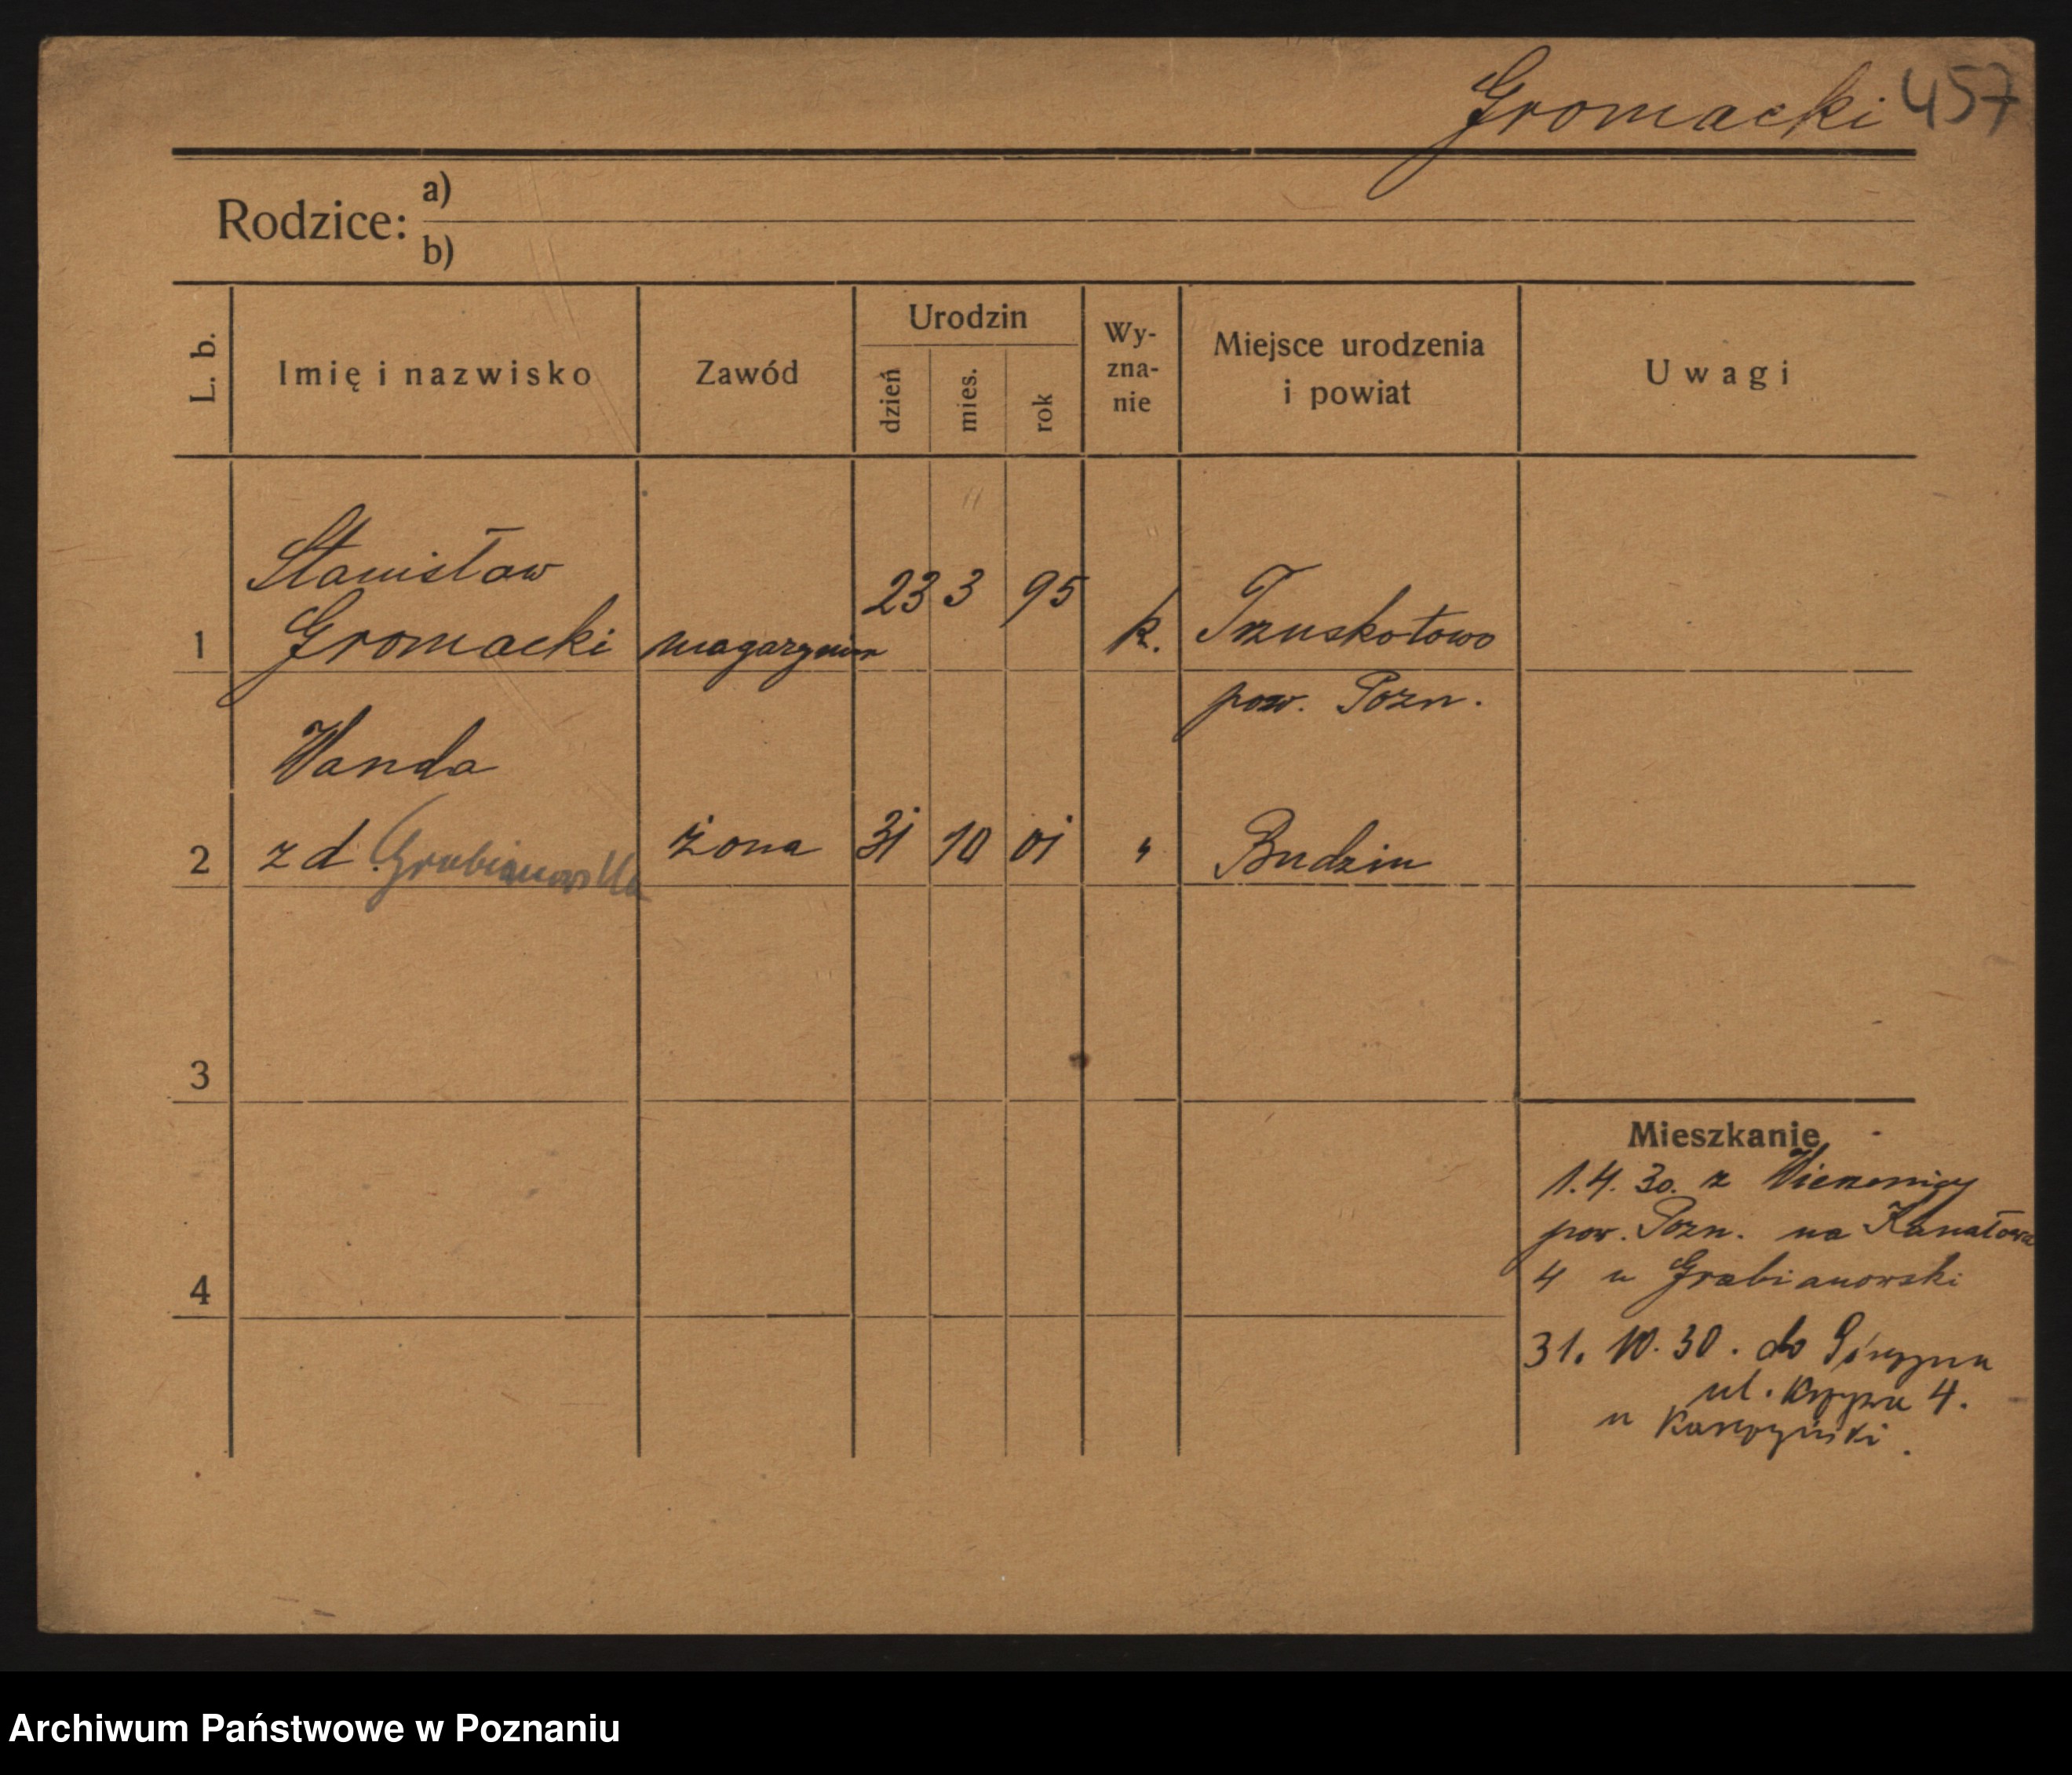 Gromacki 457
Rodzice: a)
b)
L. b.
Imię i nazwisko
Zawód
Urodzin
dzień
mies.
rok
Wy-
zna-
nie
Miejsce urodzenia
i powiat
Uwagi
Stanisław
1 Gromacki magazynier 23 3 95 k. Truskotowo
pow. Pozn.
Wanda
2 z d. Grabianowska żona 31 10 01 " Budzin
3
4
Mieszkanie
1.4.30. z Wierzenicy
pow. Pozn. na Kanałowa
4 u Grabianowski
31.10.30. do Górczyna
ul. Krzywa 4.
u Karczyński.
Archiwum Państwowe w Poznaniu